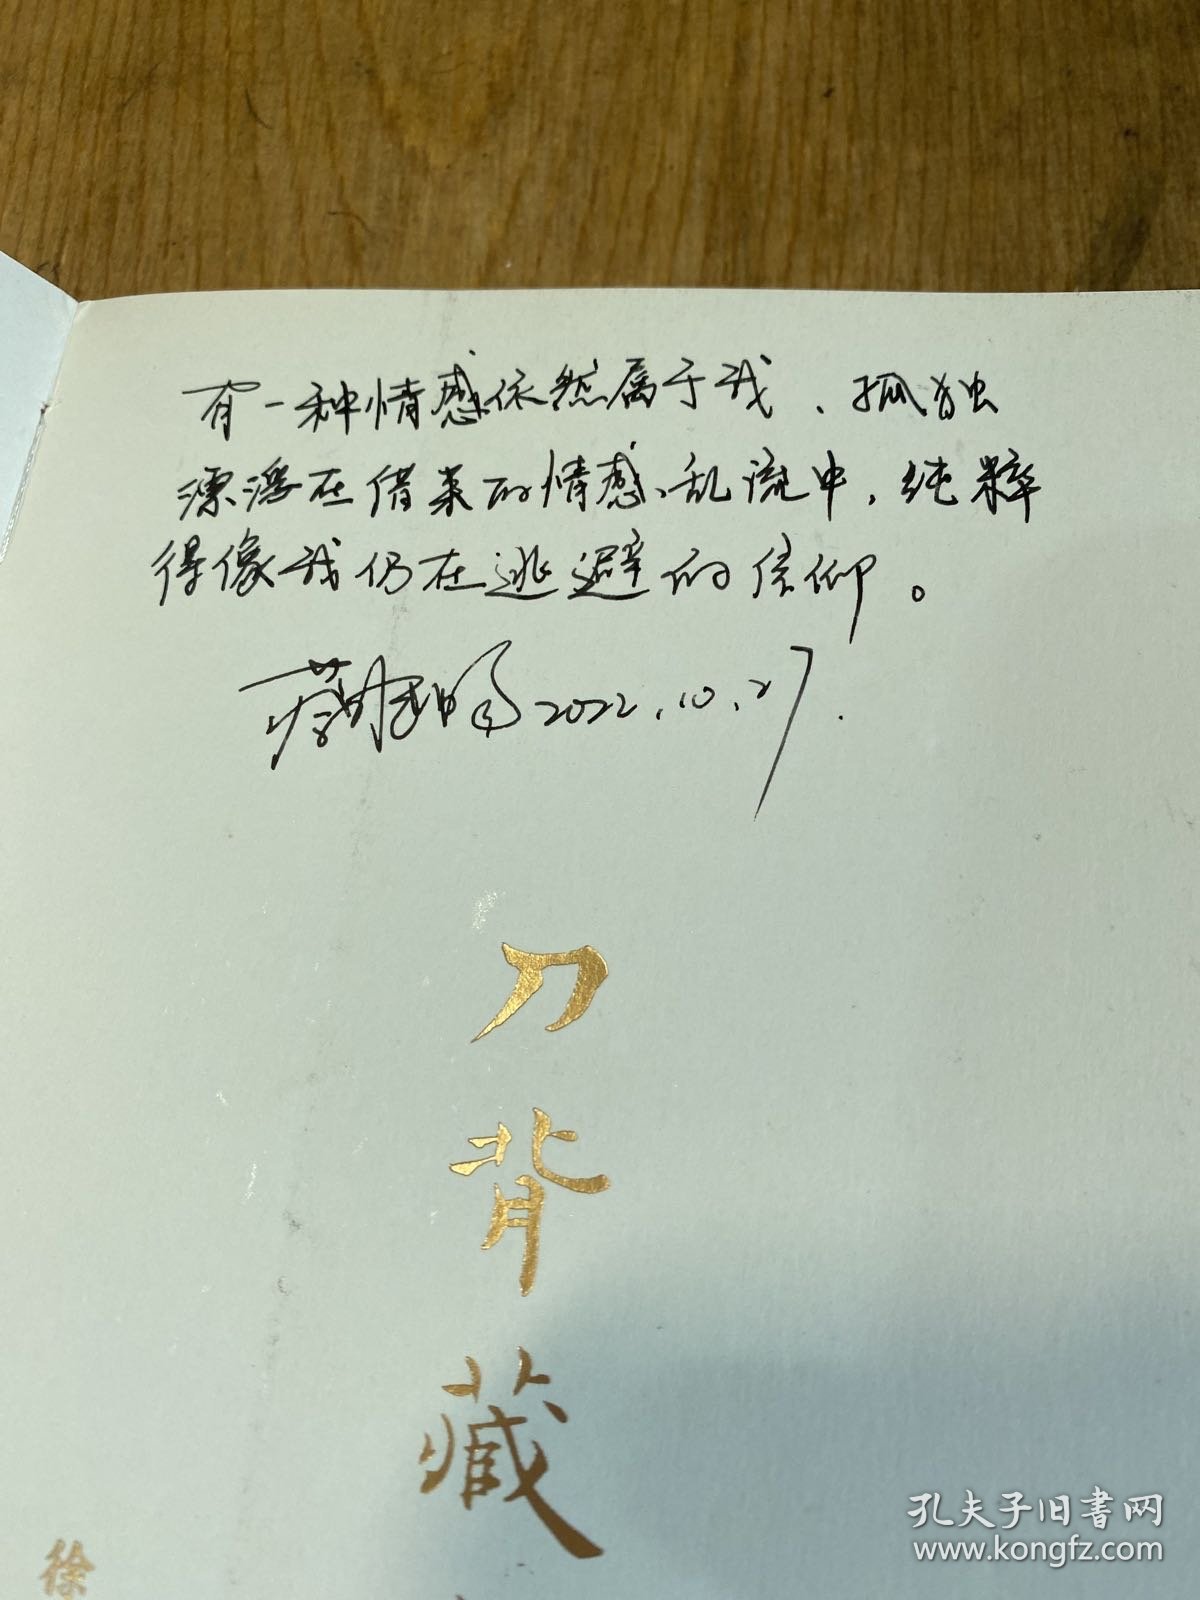 有一种情感依然属于我、孤独
漂浮在借来的情感乱流中，纯粹
得像我仍在逃避的信仰。
2022.10.27.
刀背藏
徐
孔夫子旧书网
www.kongfz.com